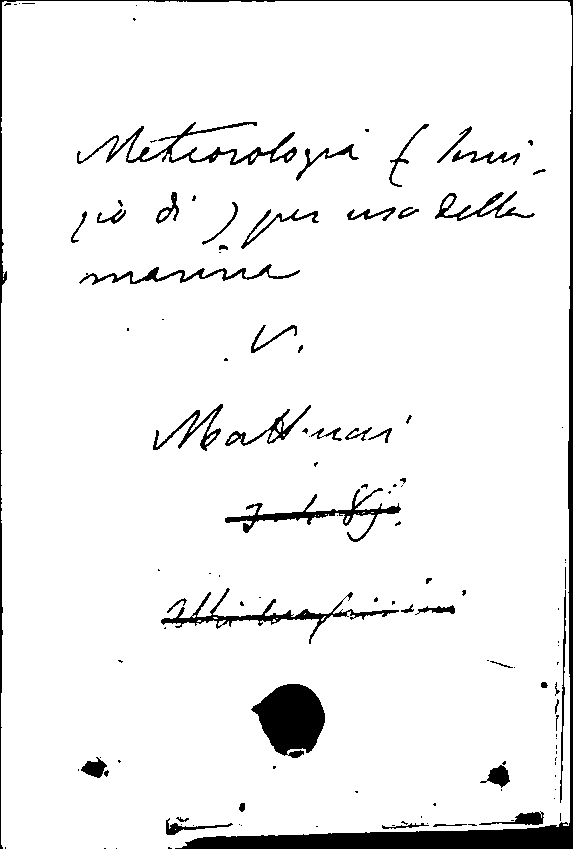 Meteorologia (Servi-
zio di) per uso della
marina
V.
Matteucci